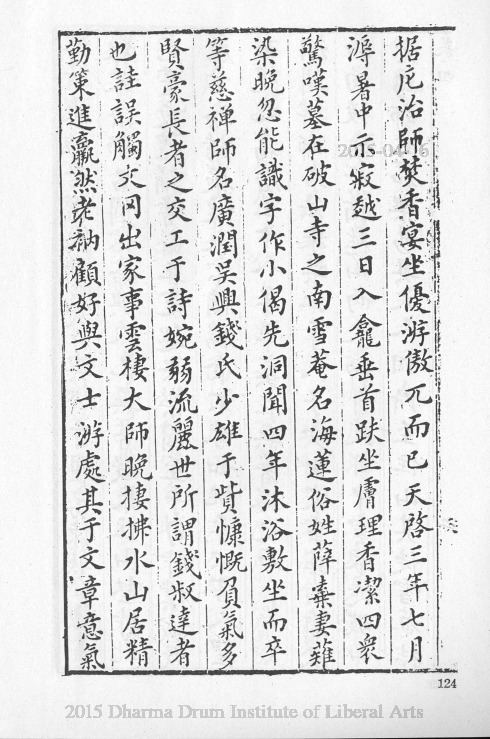 据庀治師焚香宴坐優游傲兀而已天啓三年七月
溽暑中示寂越三日入龕垂首趺坐膚理香潔四衆
驚嘆墓在破山寺之南雪菴名海蓮俗姓薛棄妻薙
染晚忽能識字作小偈先洞聞四年沐浴敷坐而卒
等慈禅師名廣潤吳興錢氏少雄于貲慷慨負氣多
賢豪長者之交工于詩婉弱流麗世所謂錢叔達者
也詿誤觸文罔出家事雲棲大師晚棲拂水山居精
勤策進羸然老衲顧好與文士游處其于文章意氣
124
2015 Dharma Drum Institute of Liberal Arts